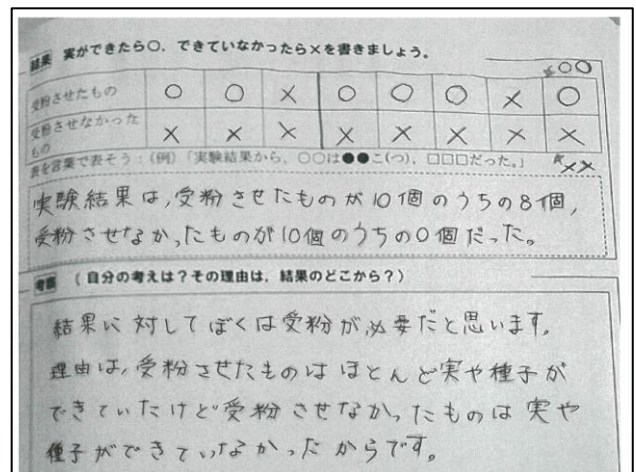 結果 実ができたら○，できていなかったら×を書きましょう。
○○
受粉させたもの ○ ○ × ○ ○ ○ × ○
受粉させなかったもの × × × × × × × ×
表を言葉で表そう：（例）「実験結果から，○○は●●こ（つ），□□□だった。」
××
実験結果は，受粉させたものが10個のうちの8個，
受粉させなかったものが10個のうちの0個だった。
考察 （自分の考えは？その理由は，結果のどこから？）
結果に対してぼくは受粉が必要だと思います。
理由は，受粉させたものはほとんど実や種子が
できていたけど受粉させなかったものは実や
種子ができていなかったからです。